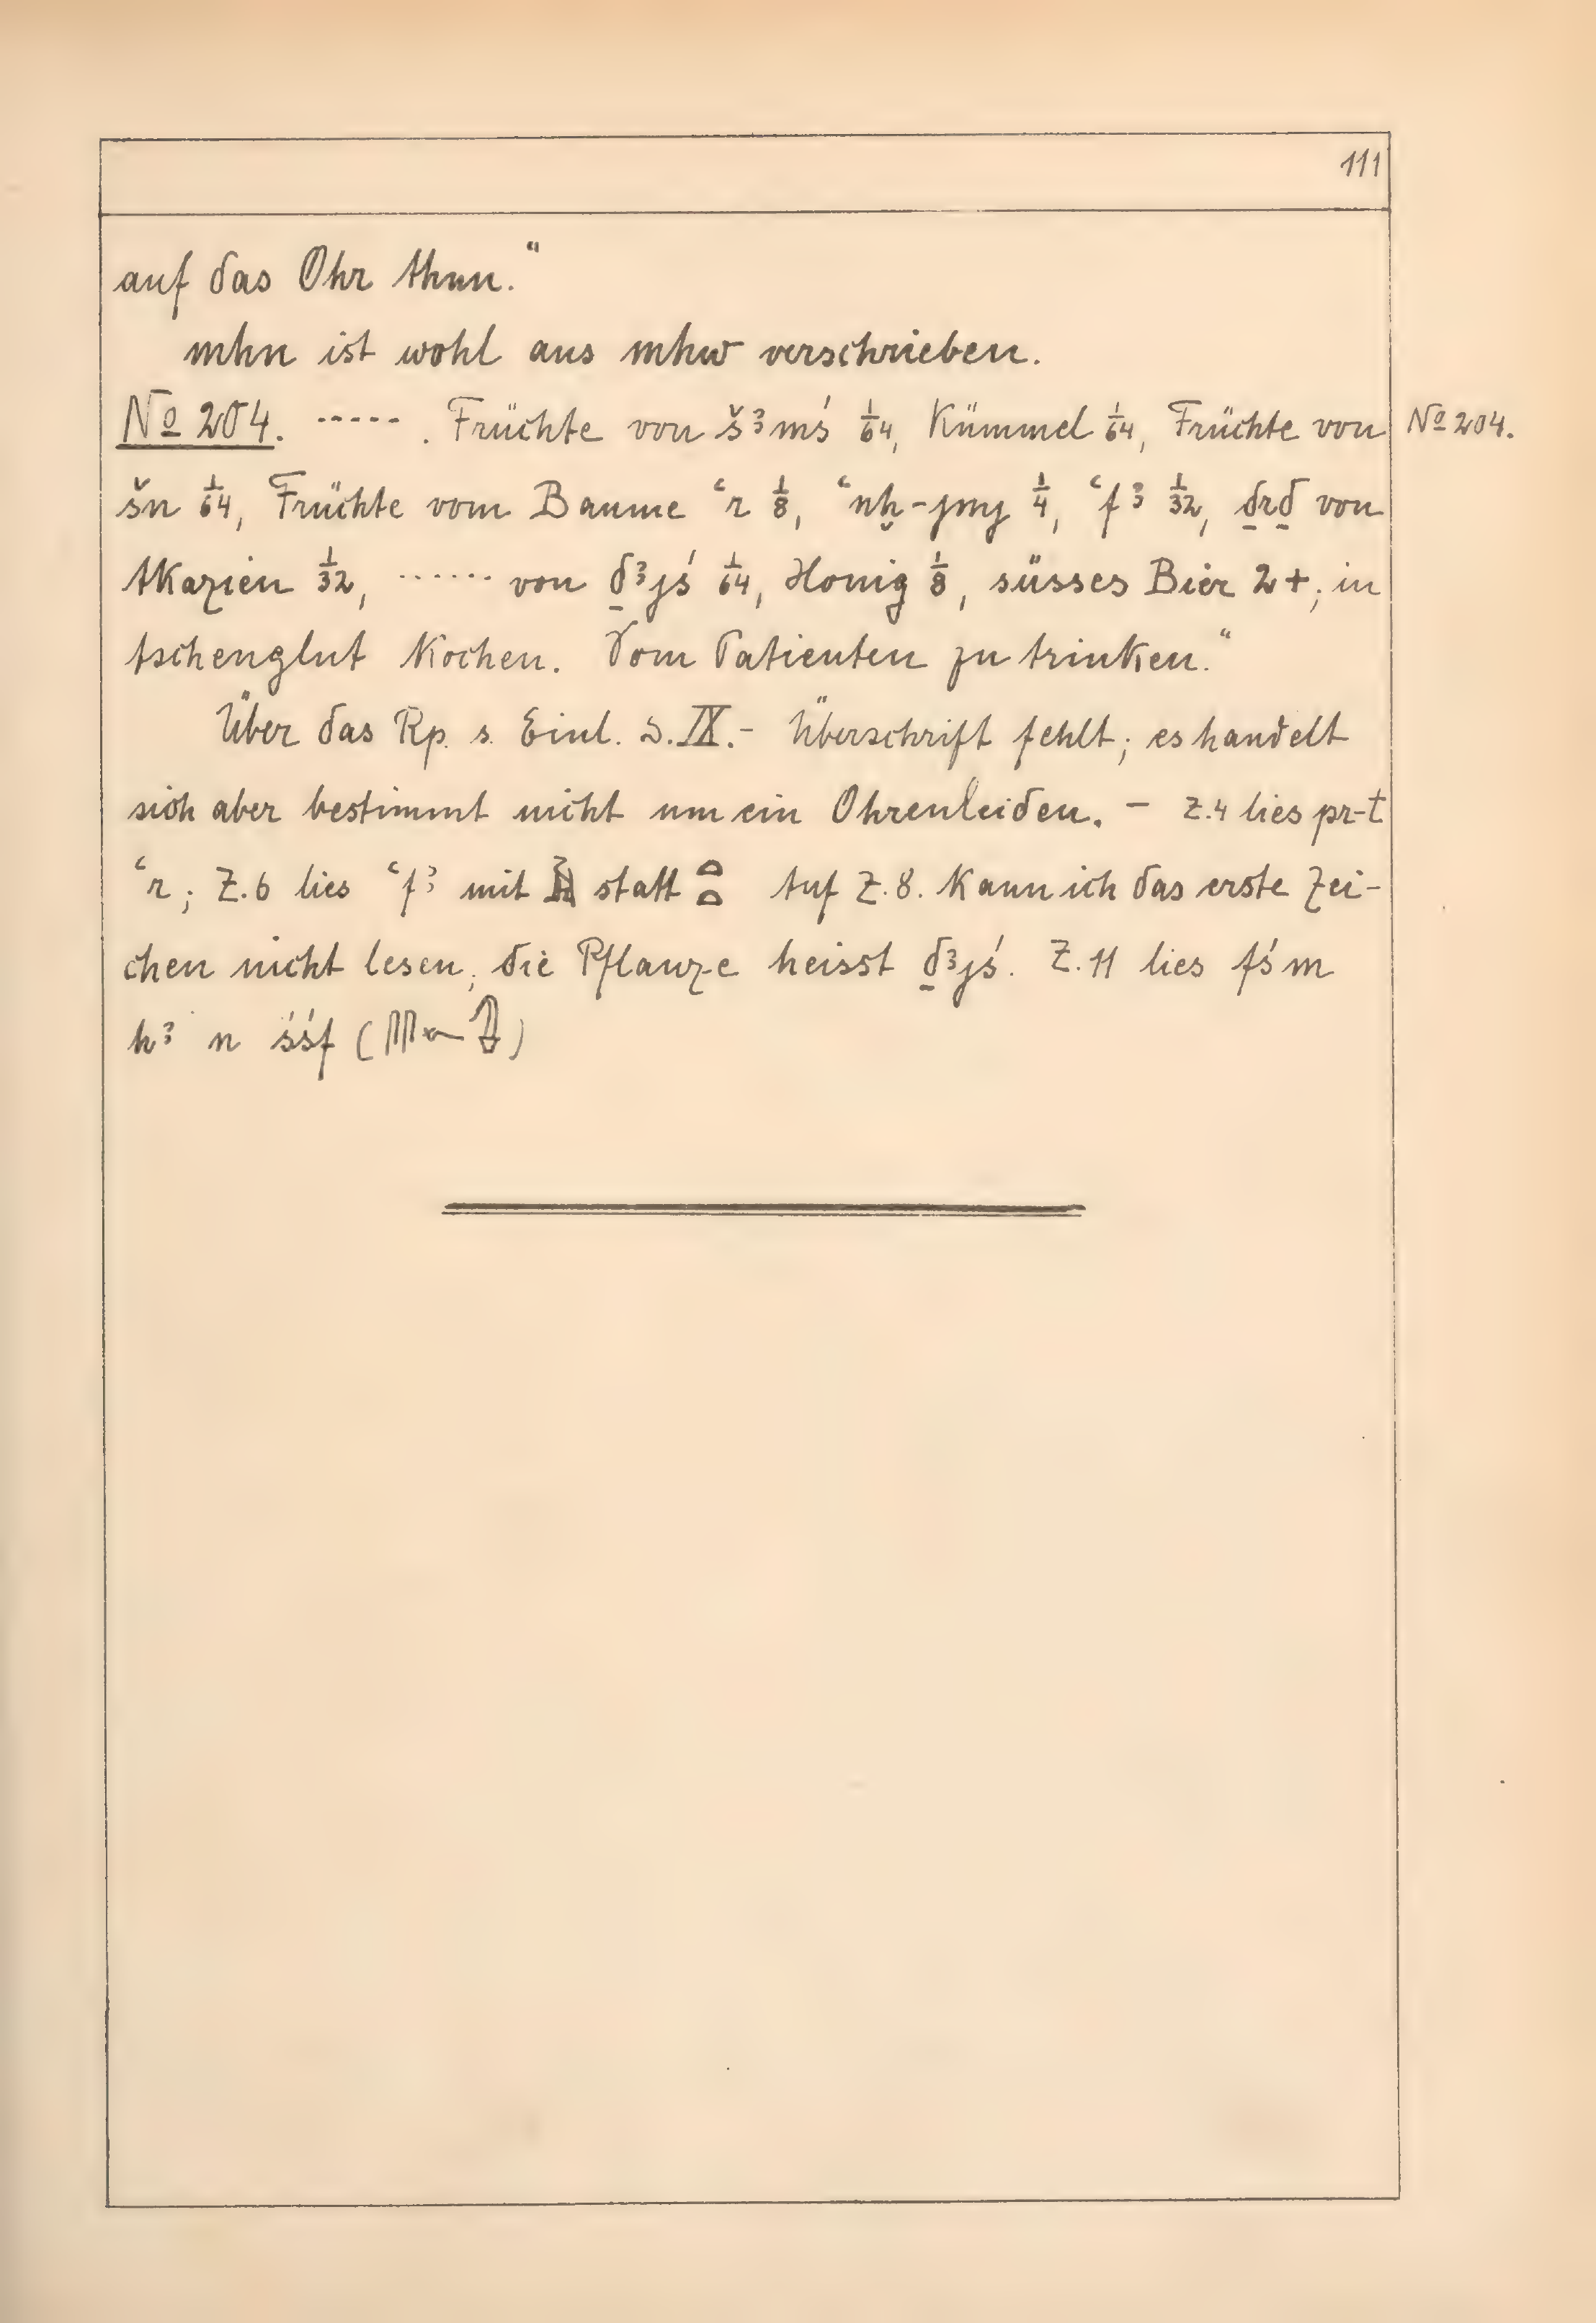 111
auf das Ohr thun.“
mhn ist wohl aus mhw verschrieben.
No 204. ----- . Früchte von šꜣmś 1/64, Kümmel 1/64, Früchte von No 204.
šn 1/64, Früchte vom Baume ꜥr 1/8, ꜥnḫ-jmj 1/4, ꜥfꜣ 1/32, ḏrḏ von
Akazien 1/32, ······ von ḏꜣjś 1/64, Honig 1/8, süsses Bier 2+; in
Aschenglut kochen. Vom Patienten zu trinken.“
Über das Rp. s. Einl. S. IX. – Überschrift fehlt; es handelt
sich aber bestimmt nicht um ein Ohrenleiden. – Z. 4 lies pr-t
ꜥr; Z. 6 lies ꜥfꜣ mit statt 𓏏𓏏 Auf Z. 8. kann ich das erste Zei-
chen nicht lesen, die Pflanze heisst ḏꜣjś. Z. 11 lies fśm
hꜣ n śśf ( )